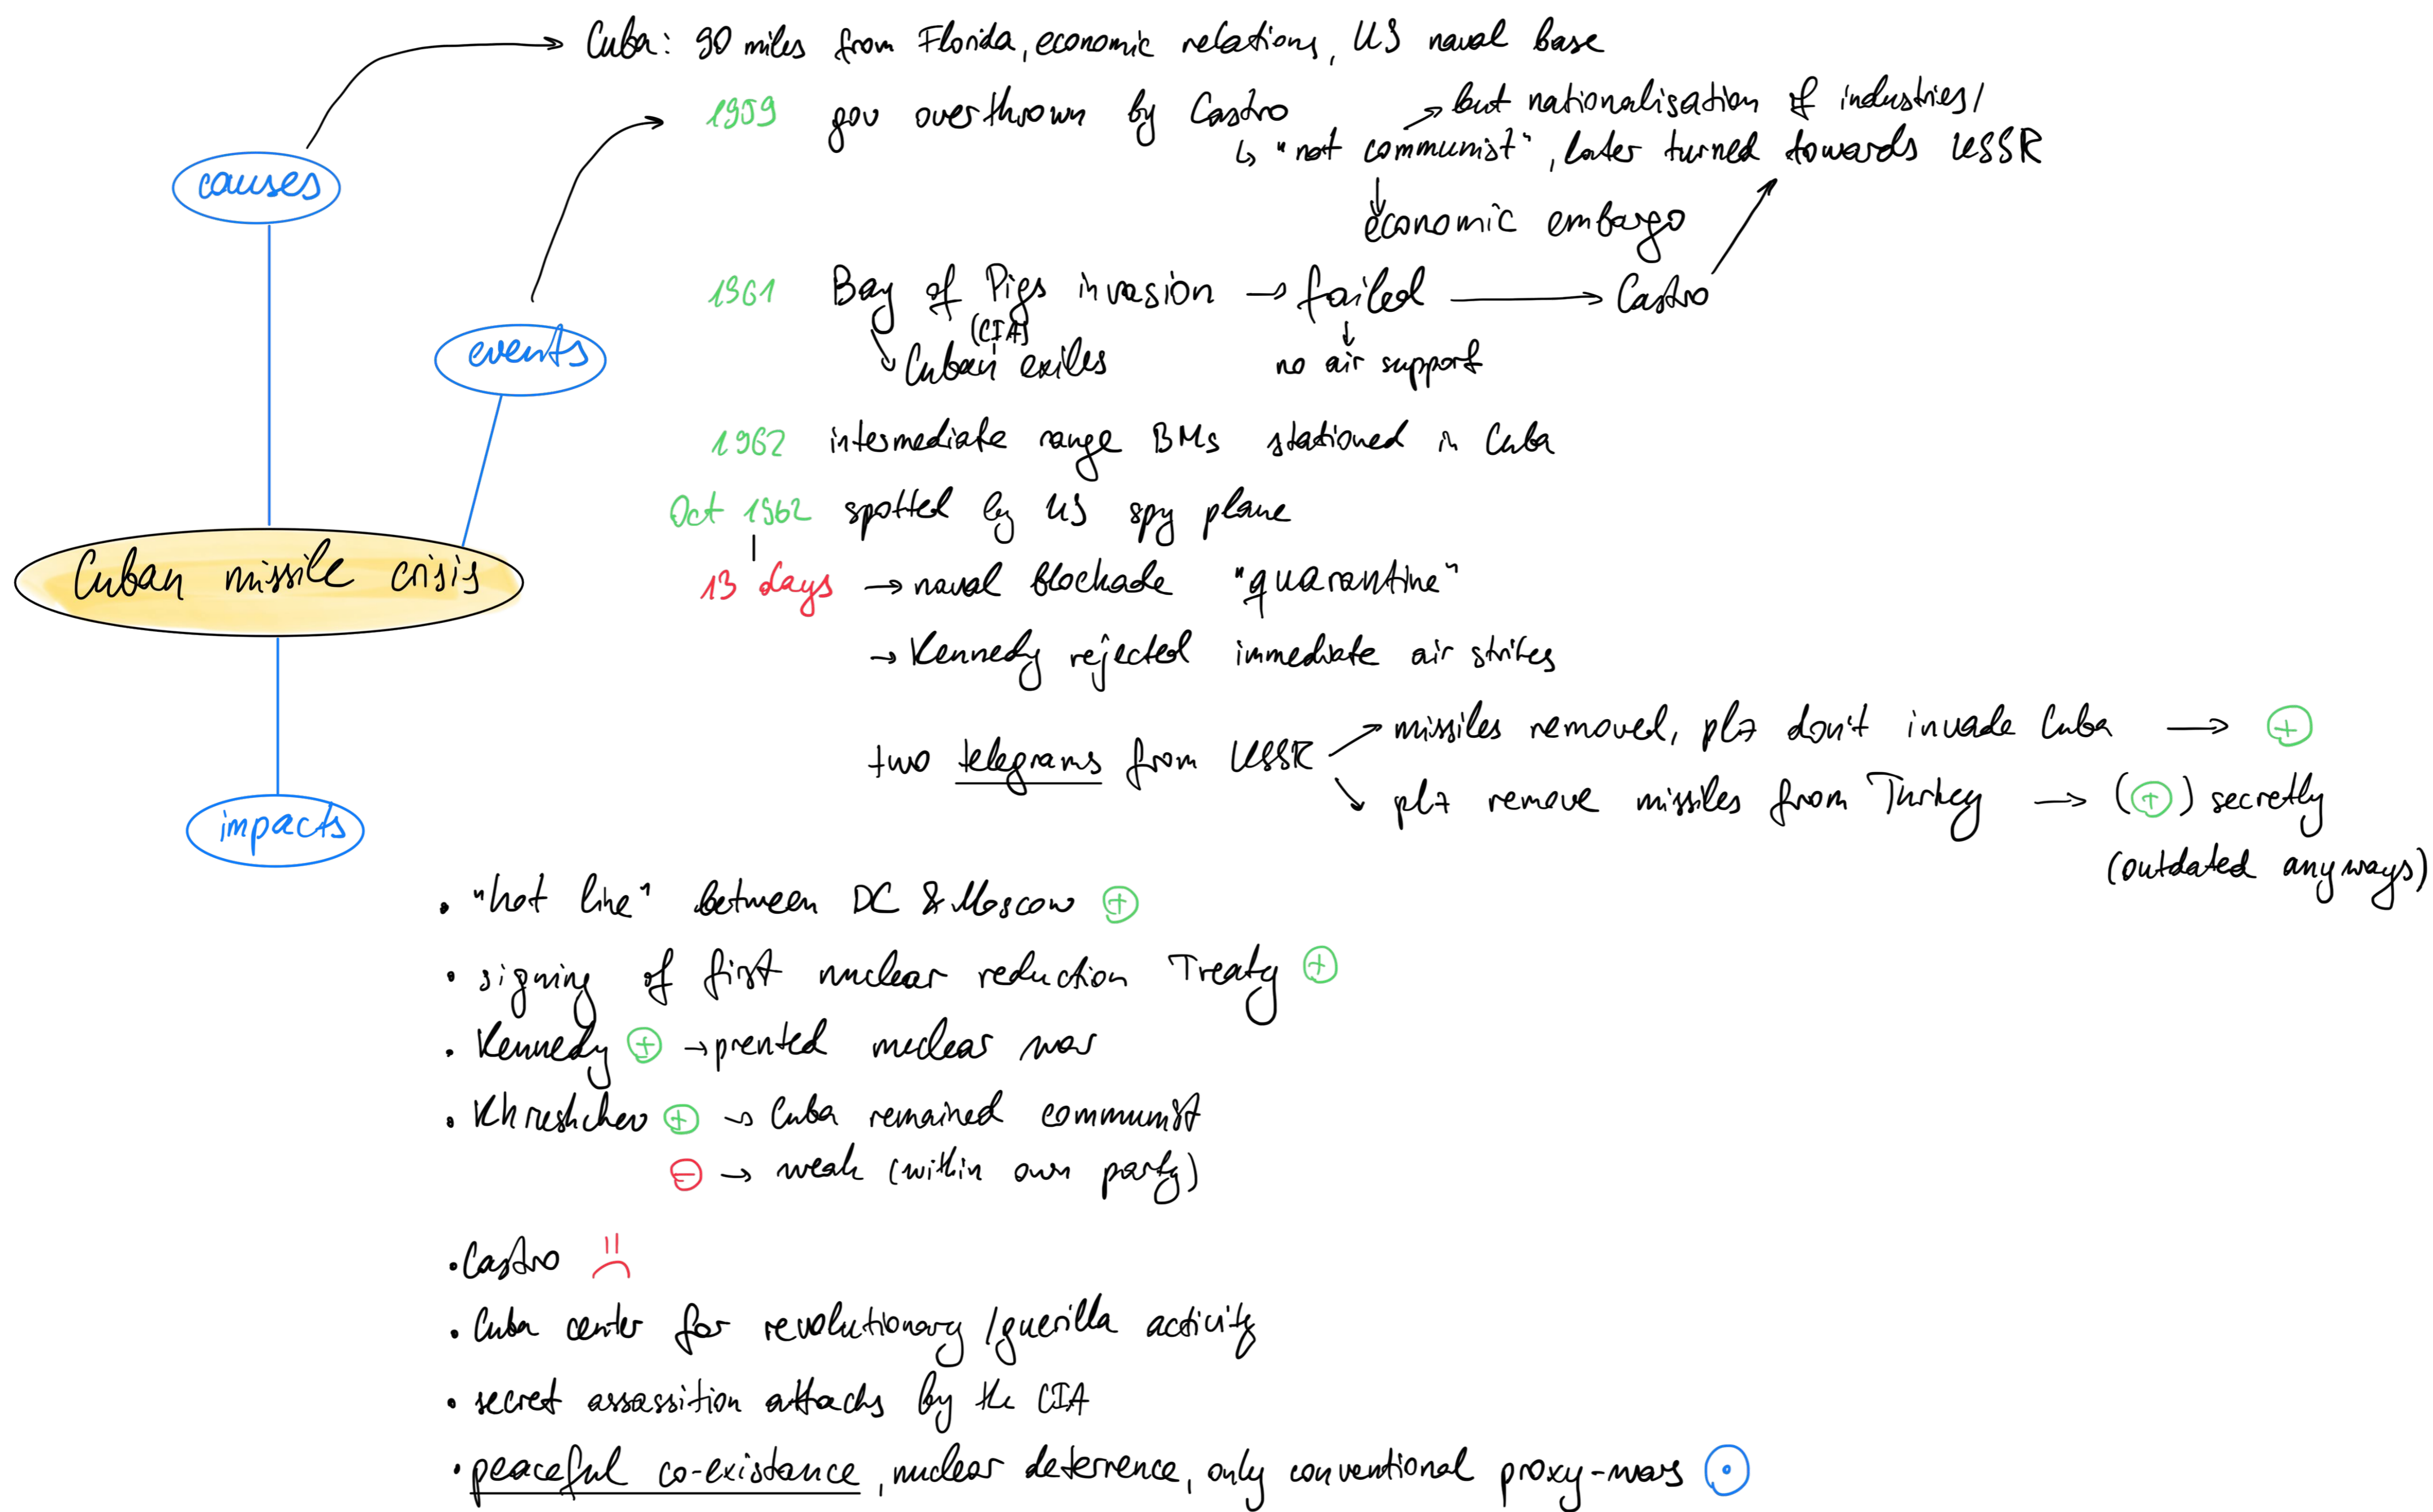 Cuba: 90 miles from Florida, economic relations, US naval base
1959 gov overthrown by Castro
but nationalisation of industries/
"not communist", later turned towards USSR
economic embargo
causes
1961 Bay of Pigs invasion → failed → Castro
(CIA)
Cuban exiles
no air support
events
1962 intermediate range BMs stationed in Cuba
Oct 1962 spotted by US spy plane
Cuban missile crisis
13 days → naval blockade "quarantine"
→ Kennedy rejected immediate air strikes
two telegrams from USSR
missiles removed, plz don't invade Cuba → +
plz remove missiles from Turkey → (+) secretly
(outdated anyways)
impacts
• "hot line" between DC & Moscow +
• signing of first nuclear reduction Treaty +
• Kennedy + → prented nuclear war
• Khreshchev + → Cuba remained communist
- → weak (within own party)
• Castro
• Cuba center for revolutionary/guerilla activity
• secret assassition attacks by the CIA
• peaceful co-existance, nuclear deterrence, only conventional proxy-wars